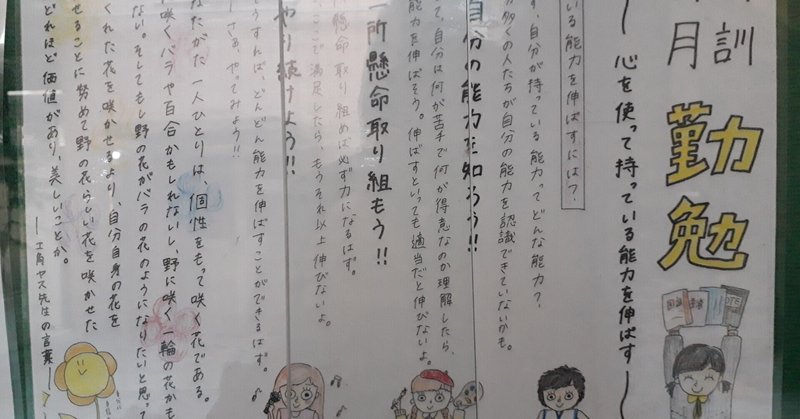 訓
月
勤勉
〜心を使って持っている能力を伸ばす〜
いる能力を伸ばすには？
す、自分が持っている能力ってどんな能力？
多くの人たちが自分の能力を認識できていないかも。
自分の能力を知ろう!!
て、自分は何が苦手で何が得意なのか理解したら、
能力を伸ばそう。伸ばすといっても適当だと伸びないよ。
一所懸命取り組もう!!
懸命取り組めば必ず力になるはず。
、ここで満足したら、もうそれ以上伸びないよ。
やり続けよう!!
うすれば、どんどん能力を伸ばすことができるはず。
さあ、やってみよう!!
なたがた一人ひとりは、個性をもって咲く花である。
咲くバラや百合かもしれないし、野に咲く一輪の花かも
ない。そしてもし野の花がバラの花のようになりたいと思って
くれた花を咲かせるより、自分自身の花を
せることに努めて野の花らしい花を咲かせた
どれほど価値があり、美しいことか。
ヤス先生の言葉
国語
NOTE